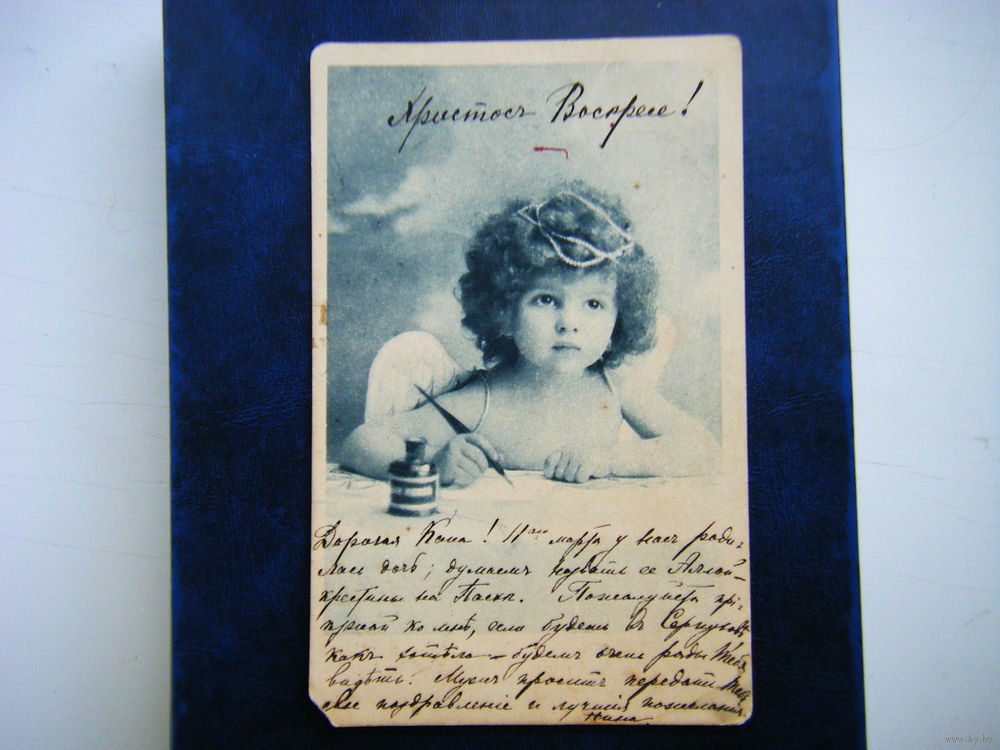 Христосъ Воскресе!
Дорогая Катя! 11го марта у насъ роди-
лась дочь; думаемъ назвать ее Аллой-
крестины на Пасхѣ. Пожалуйста прі-
ѣзжай ко мнѣ, если будешь въ Серпуховѣ
какъ хотѣла – будемъ очень рады Тебя
видѣть. Мужъ проситъ передать Тебѣ
свое поздравленіе и лучшія пожеланія.
Нина.
www.ay.by